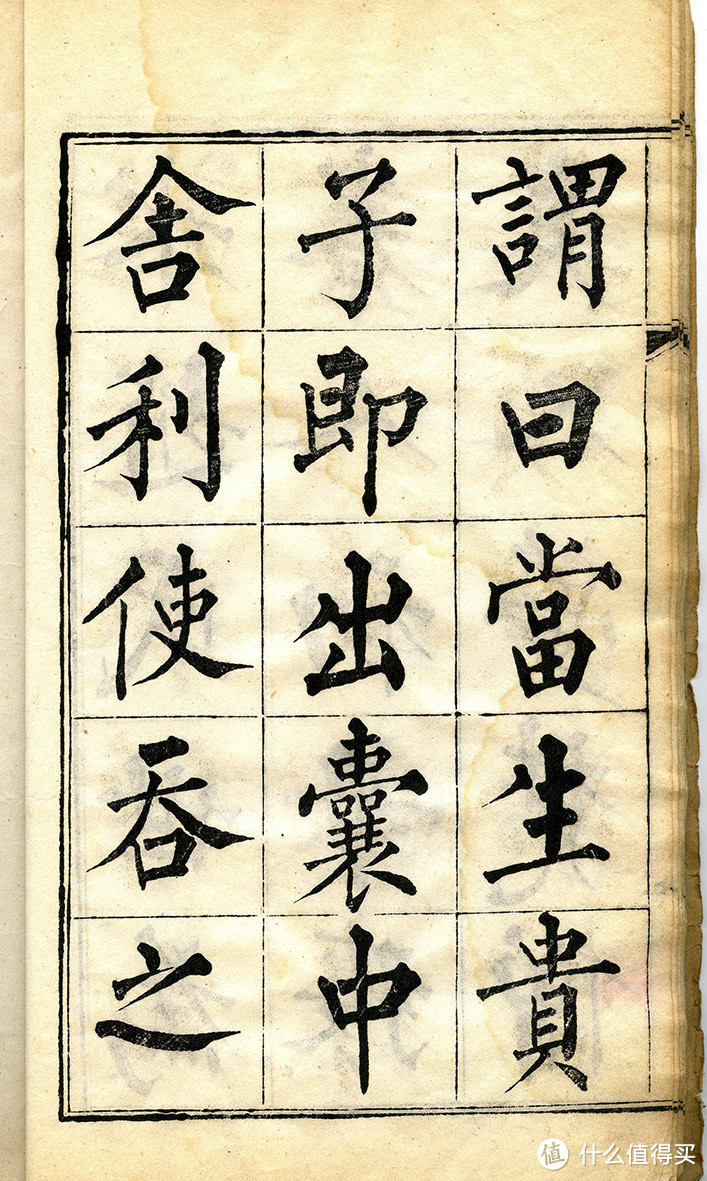 謂曰當生貴
子即出囊中
舍利使吞之
值 什么值得买